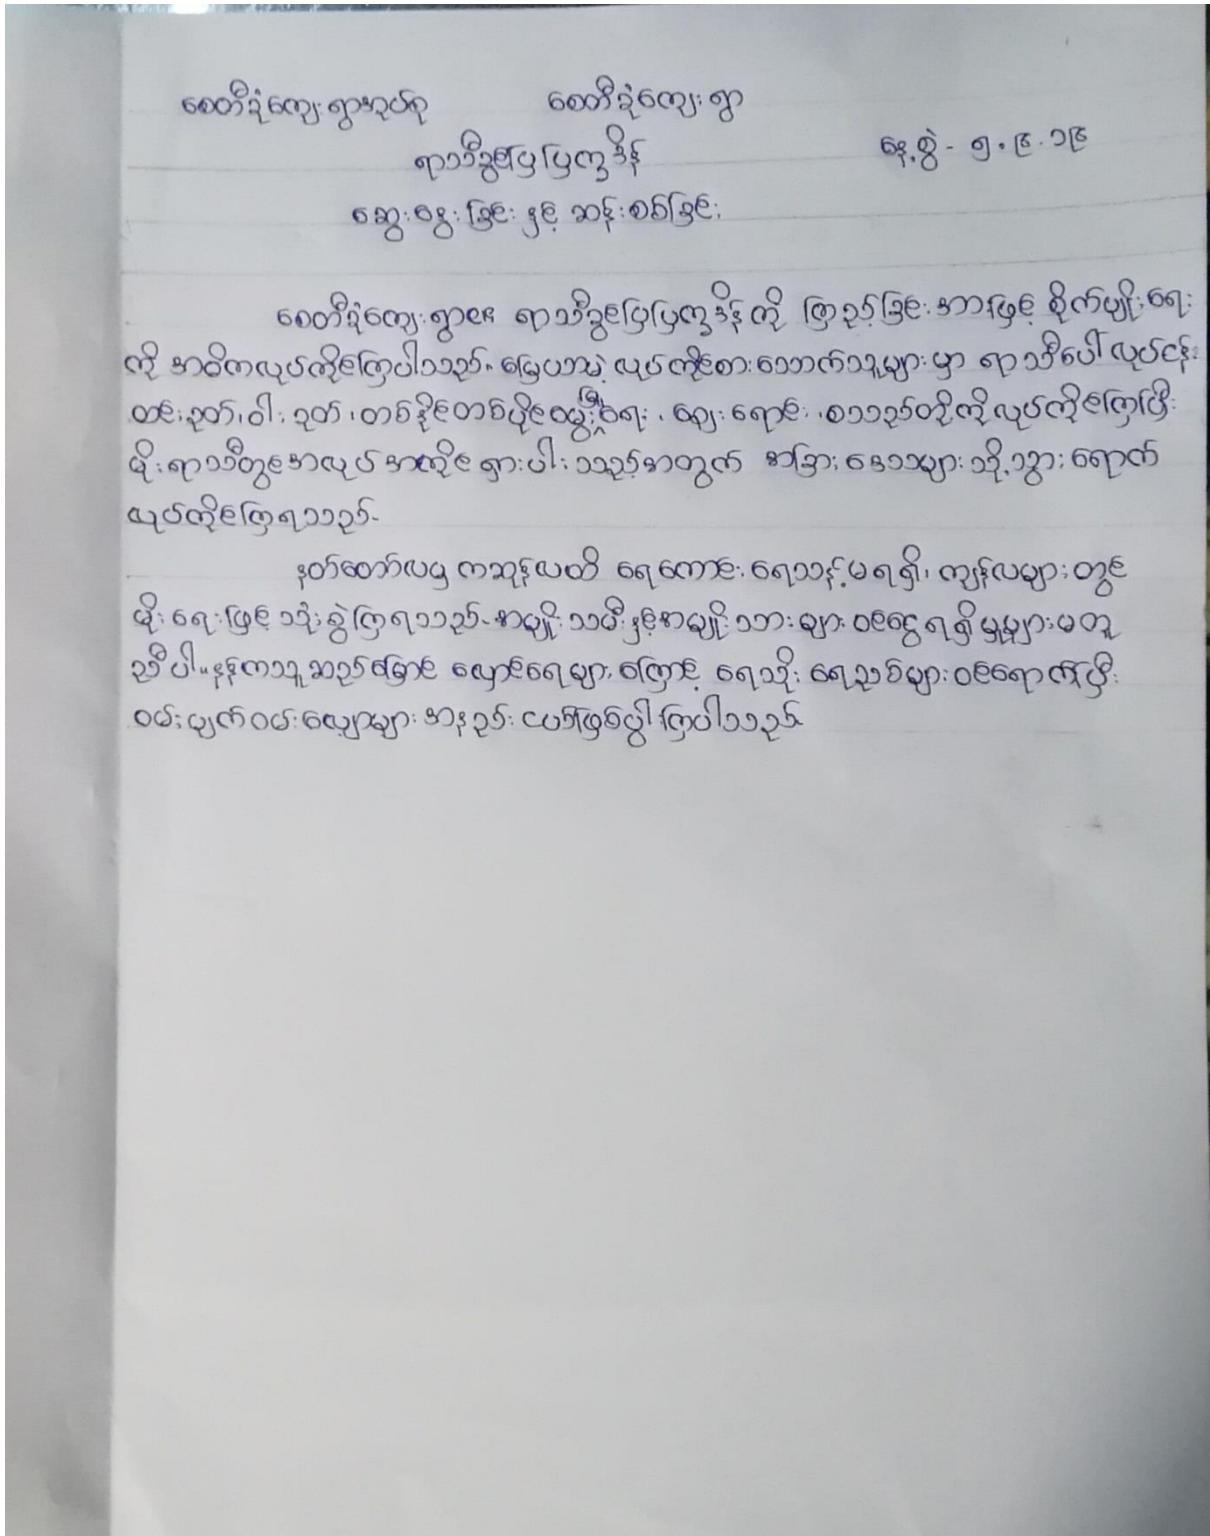 စေတီခုံကျေးရွာအုပ်စု စေတီခုံကျေးရွာ
ရာသီခွင်ပြပြက္ခဒိန် နေ့စွဲ - ၅.၉.၁၉
ဆွေးနွေးခြင်းနှင့် ဆန်းစစ်ခြင်း
စေတီခုံကျေးရွာ၏ ရာသီခွင်ပြပြက္ခဒိန်ကို ကြည့်ခြင်းအားဖြင့် စိုက်ပျိုးရေး
ကို အဓိကလုပ်ကိုင်ကြပါသည်။ မြေယာမဲ့ လုပ်ကိုင်စားသောက်သူများမှာ ရာသီပေါ်လုပ်ငန်း
ထင်းခုတ်၊ ဝါးခုတ်၊ တစ်နိုင်တစ်ပိုင်မွေးမြူရေး၊ ဈေးရောင်း၊ စသည်တို့ကိုလုပ်ကိုင်ကြပြီး
မိုးရာသီတွင်အလုပ်အကိုင်ရှားပါးသည့်အတွက် အခြားဒေသများသို့သွားရောက်
လုပ်ကိုင်ကြရသည်။
နတ်တော်လမှ ကဆုန်လထိ ရေကောင်းရေသန့်မရရှိ၊ ကျန်လများတွင်
မိုးရေဖြင့် သုံးစွဲကြရသည်။ အမျိုးသမီးနှင့်အမျိုးသားများ ဝင်ငွေရရှိမှုများမတူ
ညီပါ။ နုန်ကသူဆည်မြောင်း လျှောင်ရေများကြောင့် ရေသိုးရေညစ်များဝင်ရောက်ပြီး
ဝမ်းပျက်ဝမ်းလျှောများ အနည်းငယ်ဖြစ်ပွါးကြပါသည်။